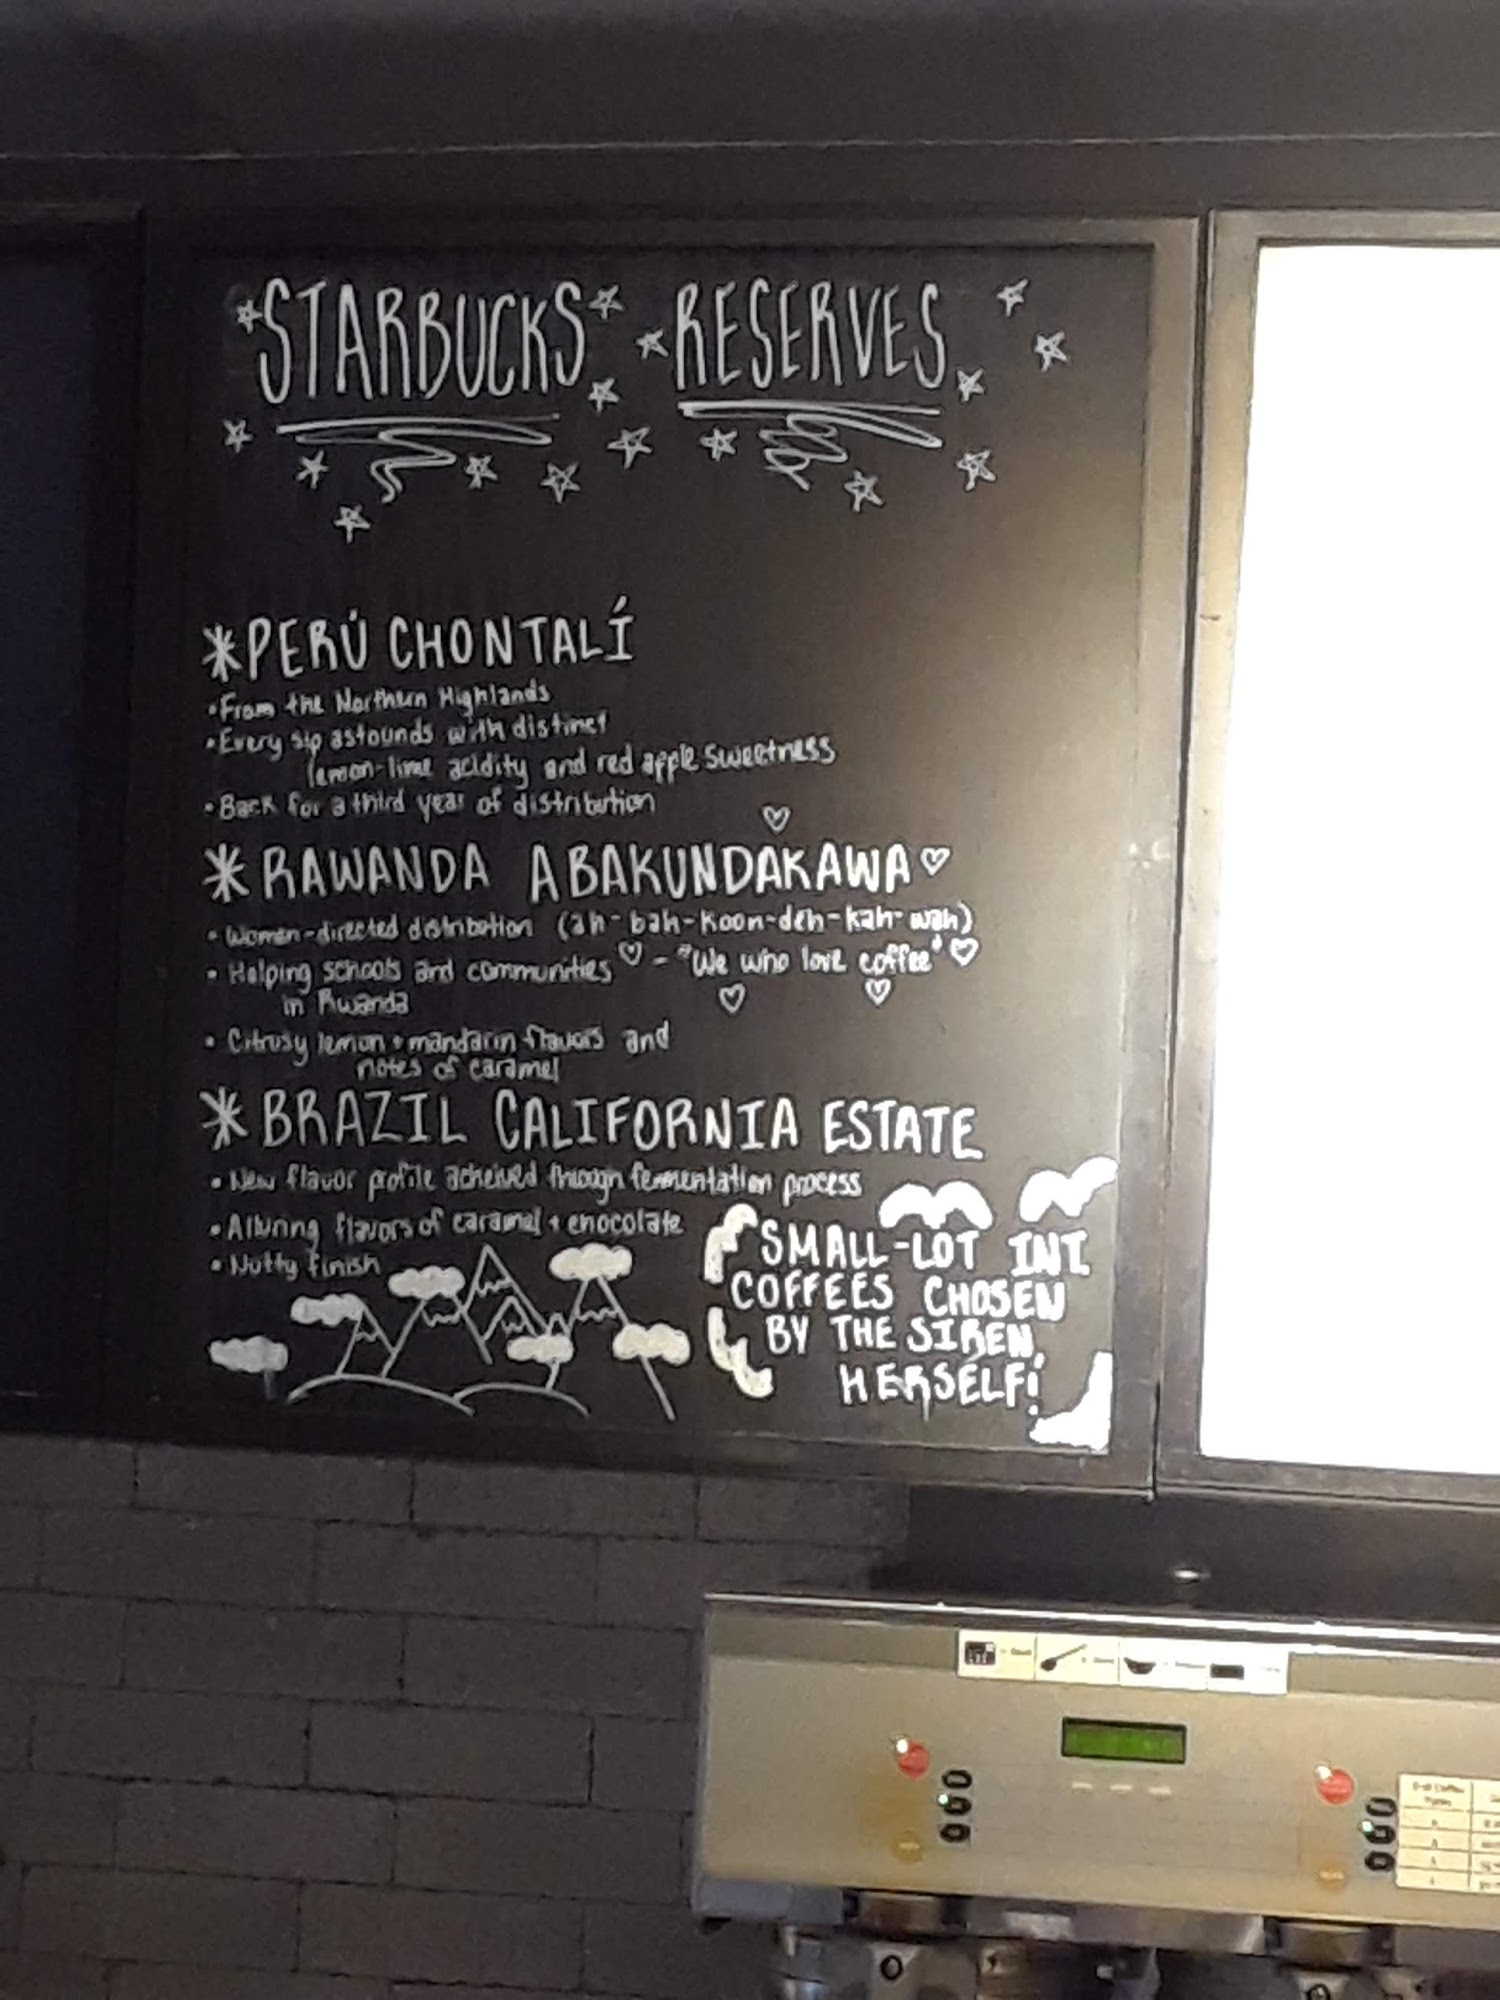 STARBUCKS RESERVES
*PERÚ CHONTALÍ
• From the Northern Highlands
• Every sip astounds with distinct
lemon-lime acidity and red apple sweetness
• Back for a third year of distribution
* RAWANDA ABAKUNDAKAWA
• Women-directed distribution (ah-bah-koon-deh-kah-wah)
• Helping schools and communities - "We who love coffee"
in Rwanda
• Citrusy lemon + mandarin flavors and
notes of caramel
* BRAZIL CALIFORNIA ESTATE
• New flavor profile acheived through fermentation process
• Alluring flavors of caramel + chocolate
• Nutty finish
SMALL-LOT INT.
COFFEES CHOSEN
BY THE SIREN,
HERSELF!